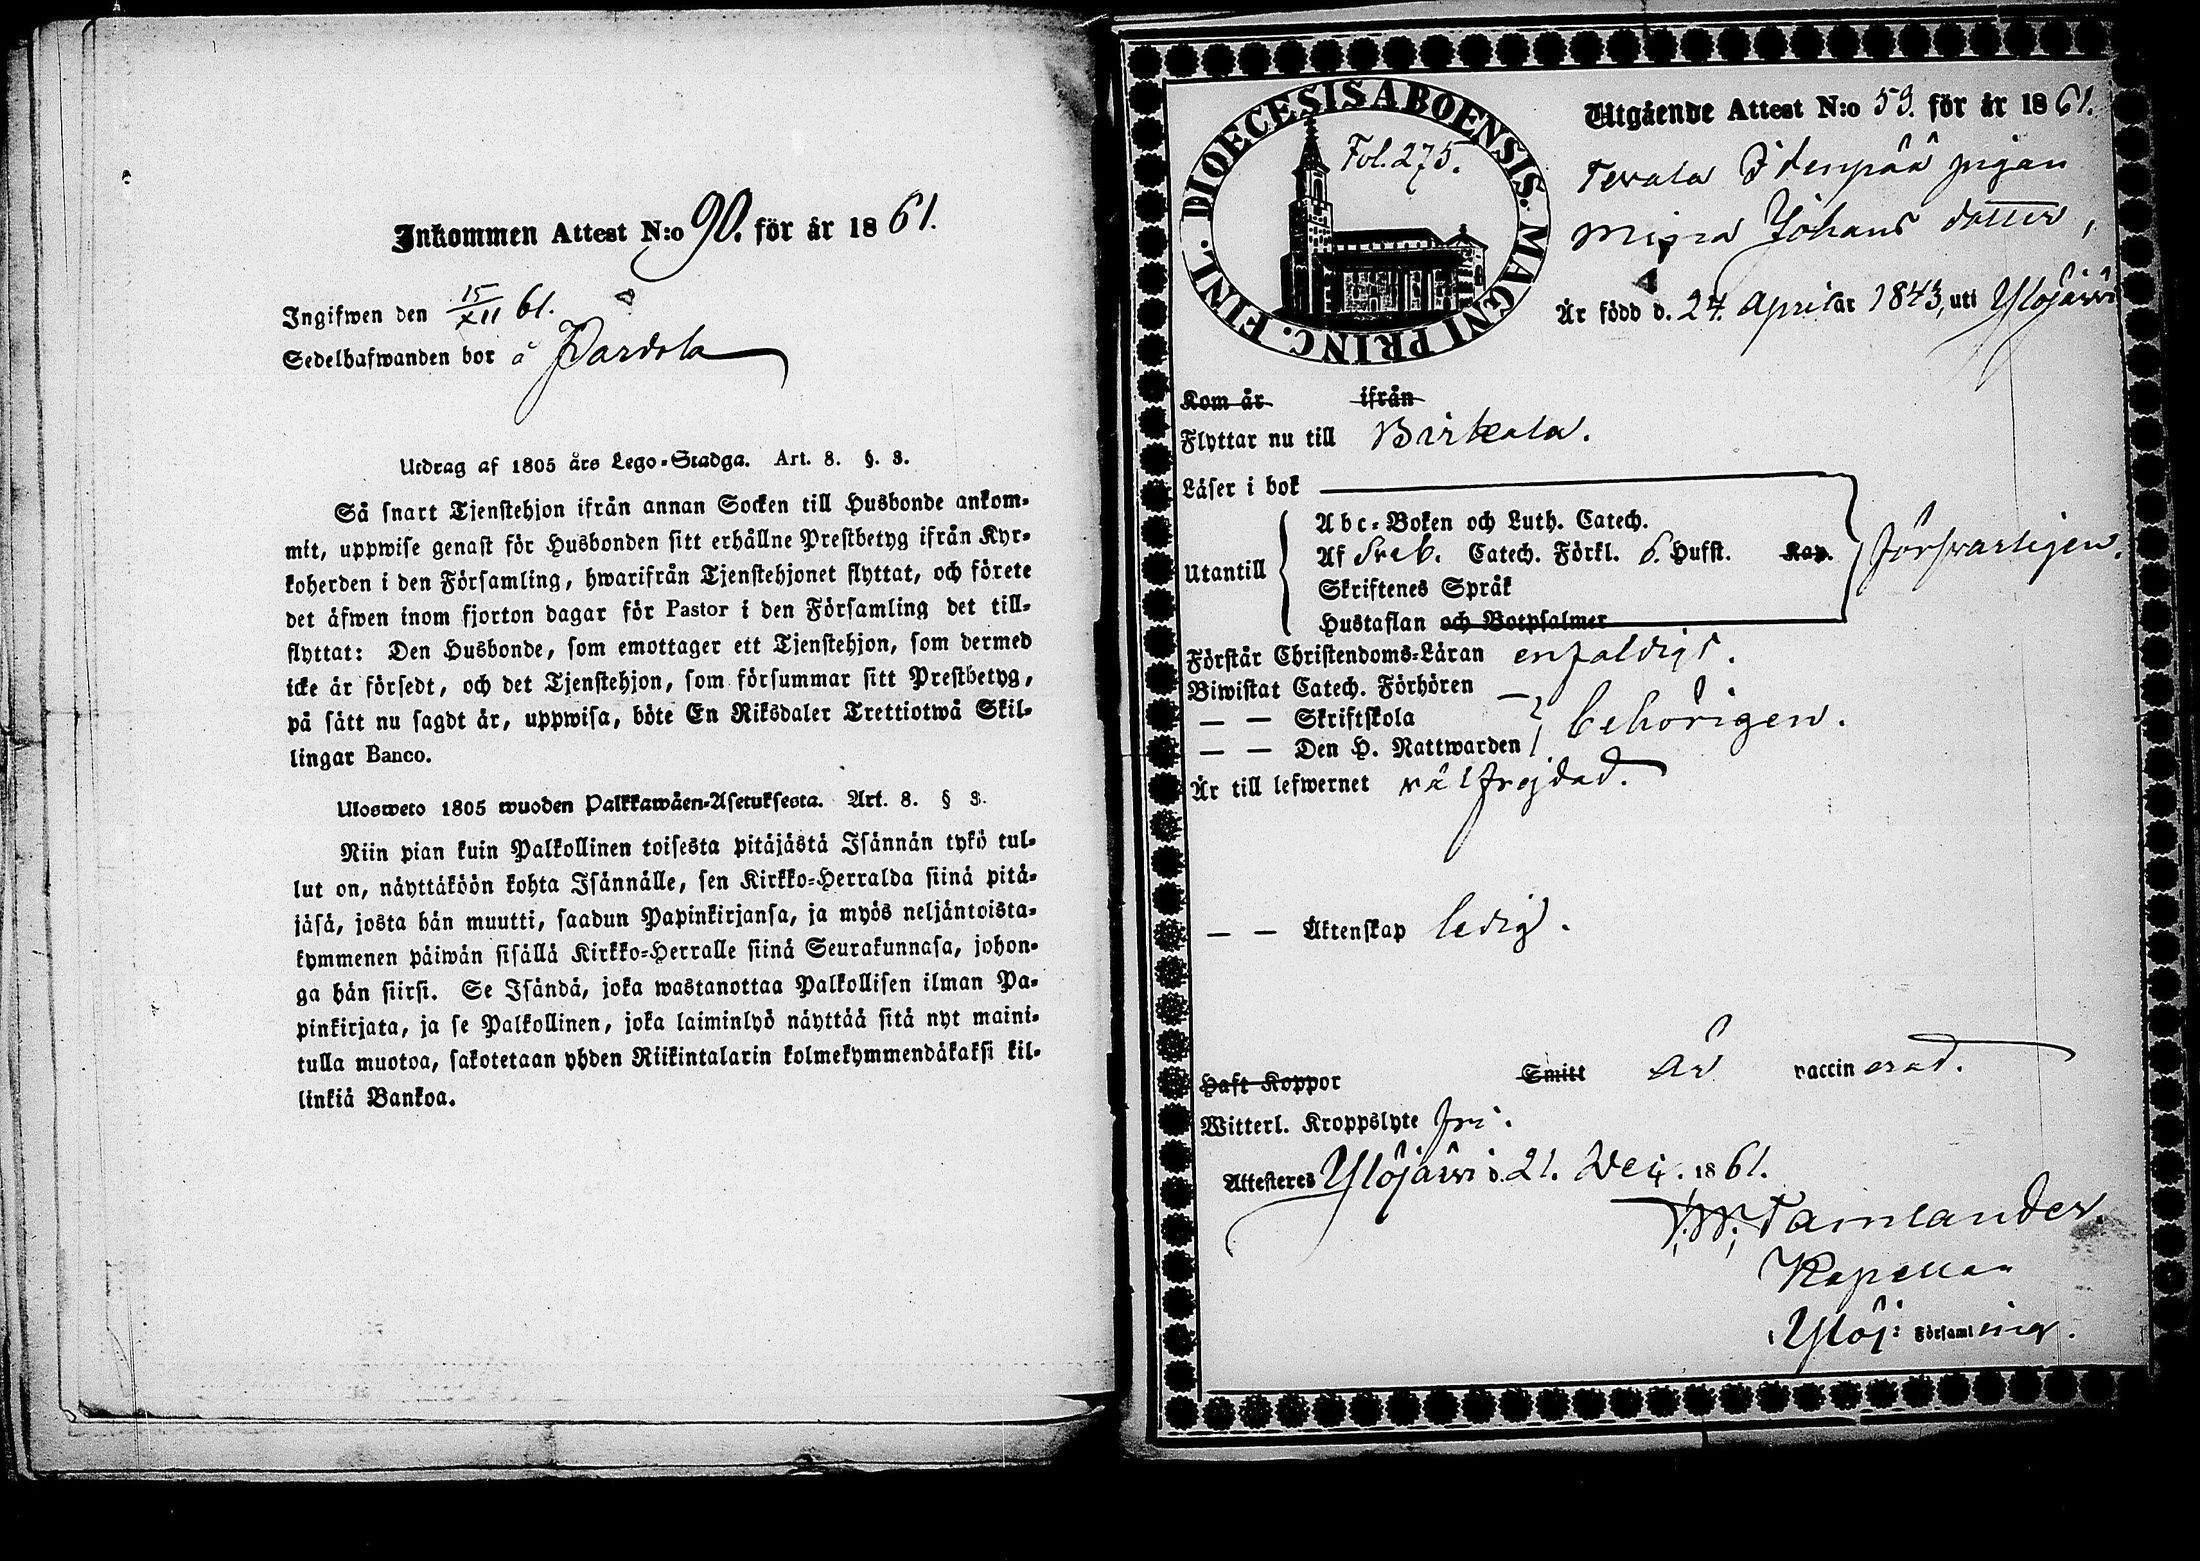 Inkommen Attest N:o 90. för år 1861.
Ingifwen den 15/XII 61.
Sedelhafwanden bor å Pardola
Utdrag af 1805 års Lego-Stadga. Art. 8. §. 8.
Så snart Tjenstehjon ifrån annan Socken till Husbonde ankom-
mit, uppwise genast för Husbonden sitt erhållne Prestbetyg ifrån Kyr-
koherden i den Församling, hwarifrån Tjenstehjonet flyttat, och förete
det äfwen inom fjorton dagar för Pastor i den Församling det till-
flyttat: Den Husbonde, som emottager ett Tjenstehjon, som dermed
icke är försedt, och det Tjenstehjon, som försummar sitt Prestbetyg,
på sätt nu sagdt är, uppwisa, böte En Riksdaler Trettiotwå Skil-
lingar Banco.
Ulosweto 1805 wuoden Palkkawäen-Asetuksesta. Art. 8. § 8.
Niin pian kuin Palkollinen toisesta pitäjästä Isännän tykö tul-
lut on, näyttäköön kohta Isännälle, sen Kirkko-Herralda siinä pitä-
jäsä, josta hän muutti, saadun Papinkirjansa, ja myös neljäntoista-
kymmenen päiwän sisällä Kirkko-Herralle siinä Seurakunnasa, johon-
ga hän siirsi. Se Isändä, joka wastanottaa Palkollisen ilman Pa-
pinkirjata, ja se Palkollinen, joka laiminlyö näyttää sitä nyt maini-
tulla muotoa, sakotetaan yhden Riikintalarin kolmekymmendäkaksi kil-
linkiä Bankoa.
DIOECESIS ABOENSIS. MAGNI PRINC. FINL.
Fol. 275.
Utgående Attest N:o 59. för år 1861.
Terala Idenpää pigan
Mina Johans dotter,
Är född d. 24. April år 1843, uti Ylöjärvi
Kom år ifrån
Flyttar nu till Birkala.
Läser i bok
Utantill
Abc-Boken och Luth. Catech.
Af Sveb. Catech. Förkl. 6. Hufst. Kap.
Skriftenes Språk
Hustaflan och Botpsalmer
försvarligen.
Förstår Christendoms-Läran enfaldigt.
Biwistat Catech. Förhören
— — Skriftskola
— — Den H. Nattwarden
behörigen.
Är till lefwernet välfrejdad.
— — Äktenskap ledig.
Haft Koppor Smitt är vaccinerad.
Witterl. Kroppslyte fri.
Attesteres Ylöjärvi d. 21. Dec. 1861.
Tamlander.
Kapellan
Ylöj: Församling.